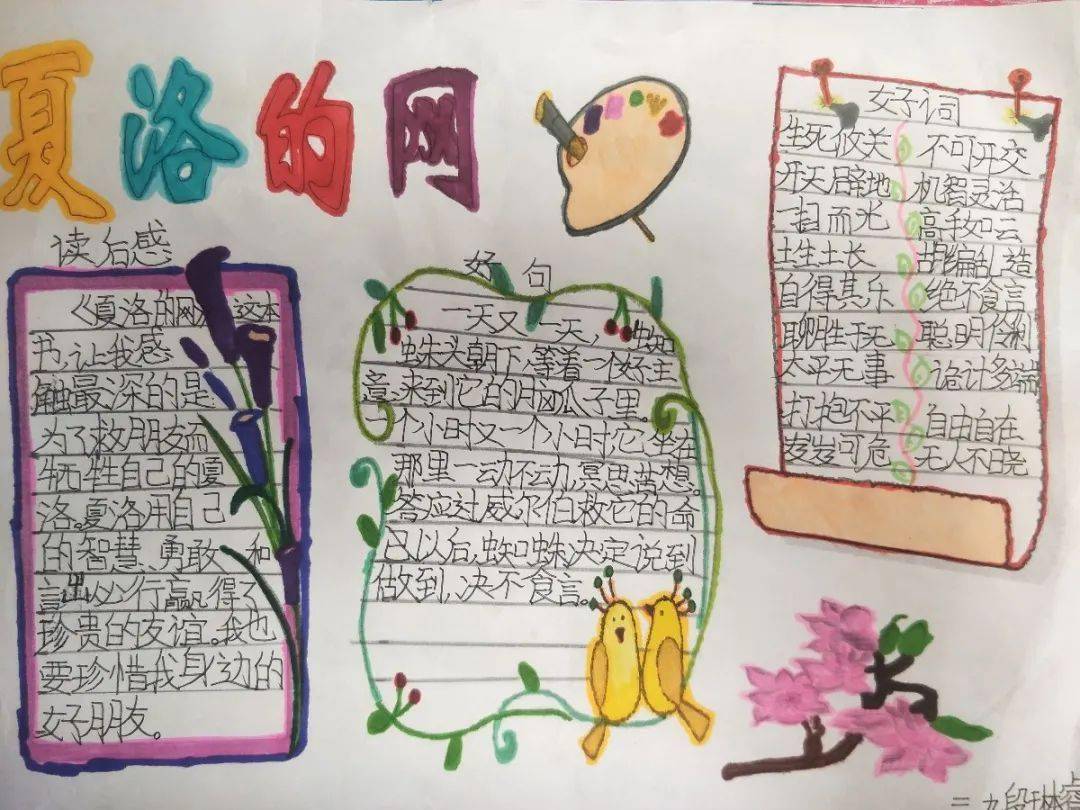 夏洛的网
读后感
《夏洛的网》这本
书,让我感
触最深的是
为了救朋友而
牺牲自己的夏
洛。夏洛用自己
的智慧、勇敢、和
言出必行赢得了
珍贵的友谊。我也
要珍惜我身边的
好朋友。
好句
一天又一天,蜘
蛛头朝下,等着一个好主
意,来到它的脑瓜子里。
一个小时又一个小时,它坐在
那里一动不动,冥思苦想。
答应过威尔伯救它的命
已以后,蜘蛛决定说到
做到,决不食言。
好词
生死攸关 不可开交
开天辟地 机智灵活
一扫而光 高手如云
土生土长 胡编乱造
自得其乐 绝不食言
聊胜于无 聪明伶俐
太平无事 诡计多端
打抱不平 自由自在
岁岁可危 无人不晓
三 九 段琳睿